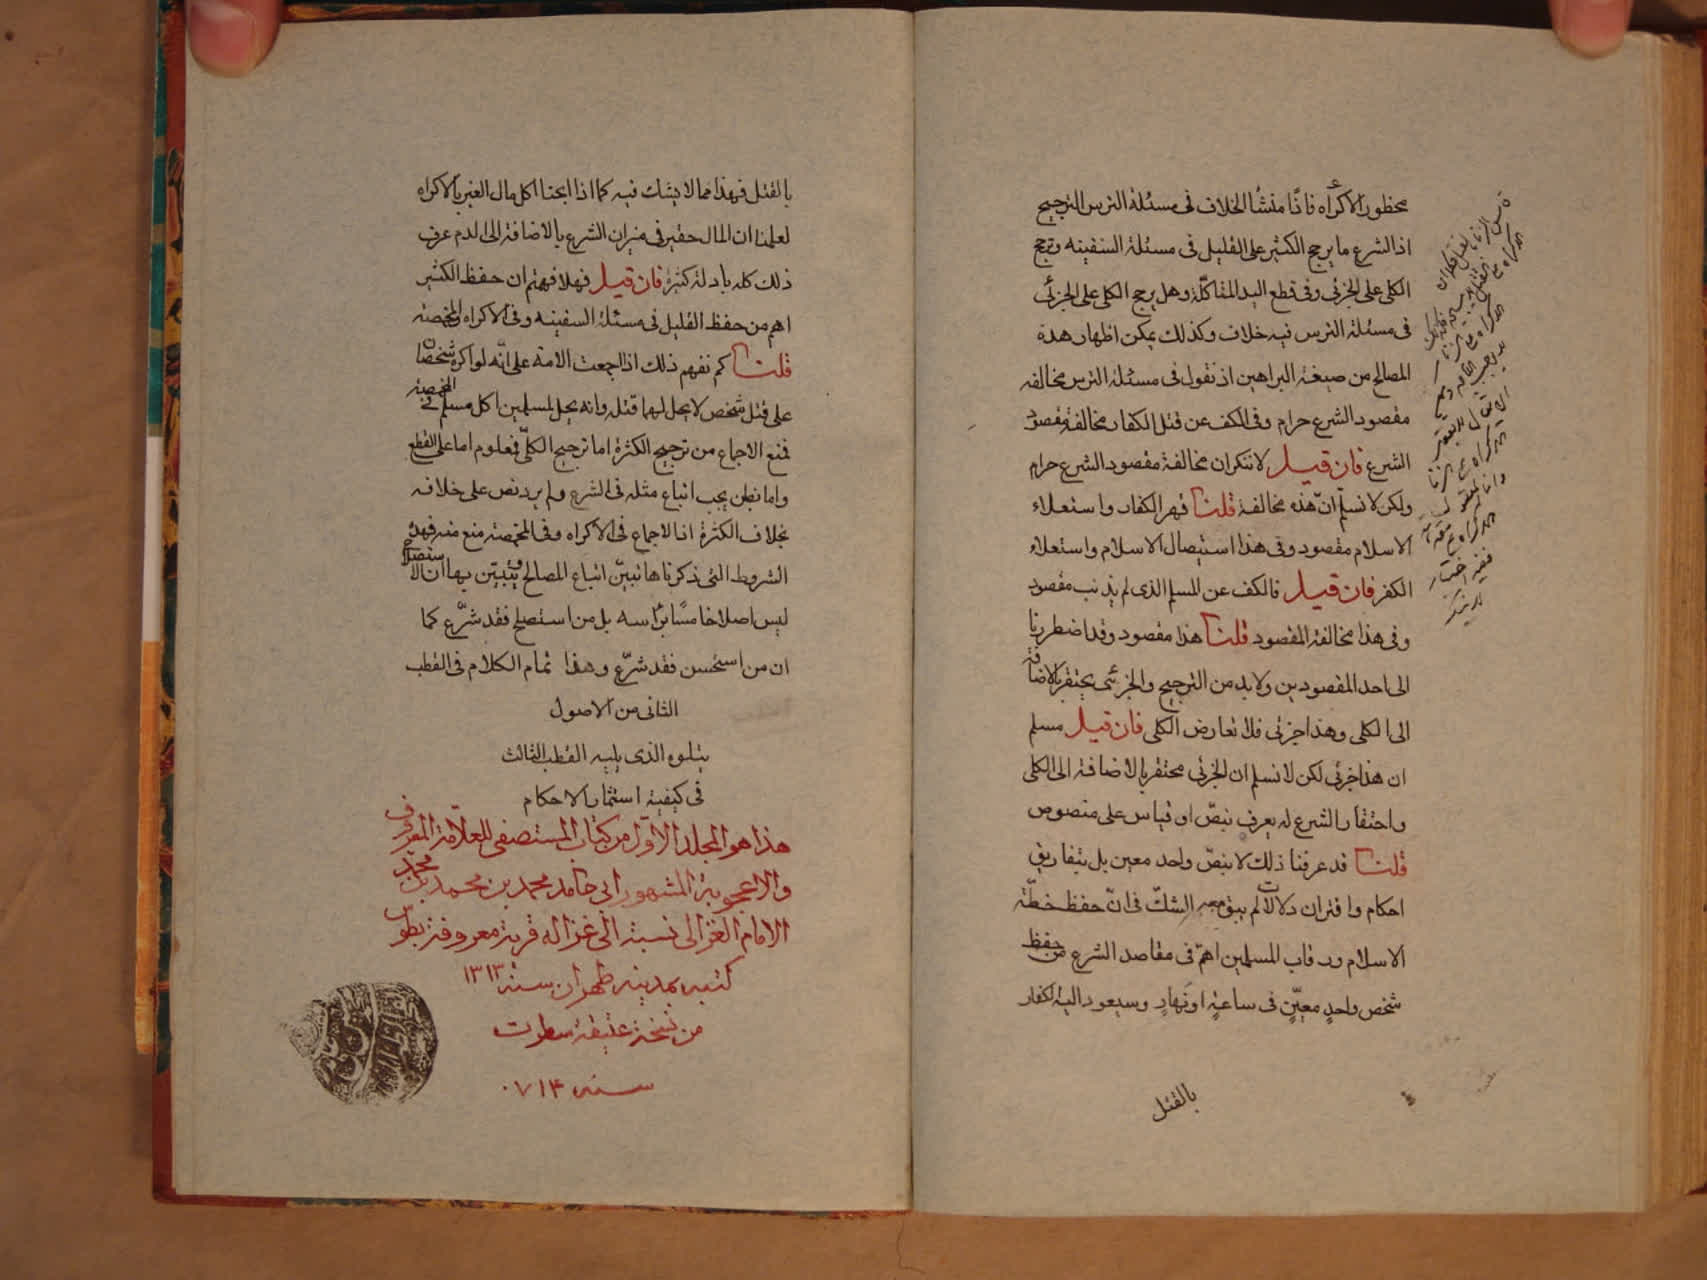 محظور الاكراه فاذًا منشأ الخلاف فى مسئلة الترس الترجيح
اذ الشرع ما يرجح الكثير على القليل فى مسئلة السفينه ويرجح
الكلى على الجزئى وفى قطع اليد المتاكلة وهل يرجح الكلى على الجزئى
فى مسئلة الترس فيه خلاف وكذلك يمكن اظهار هذه
المصالح من صيغة البراهين اذ نقول فى مسئلة الترس مخالفه
مقصود الشرع حرام وفى الكف عن قتل الكفار مخالفة مقصود
الشرع فان قيل لا ننكر ان مخالفة مقصود الشرع حرام
ولكن لا نسلم انّ هذه مخالفة قلنا قهر الكفار واستعلاء
الاسلام مقصود وفى هذا استيصال الاسلام واستعلاء
الكفر فان قيل فالكف عن المسلم الذى لم يذنب مقصود
وفى هذا مخالفة المقصود قلنا هذا مقصود وقد اضطررنا
الى احد المقصودين ولا بد من الترجيح والجزئى يحتقر بالاضافة
الى الكلى وهذا جزئى فلا تعارض الكلى فان قيل مسلم
ان هذا جزئى لكن لا نسلم ان الجزئى محتقر بالاضافة الى الكلى
واحتقار الشرع له يعرف بنصّ او قياس على منصوص
قلنا قد عرفنا ذلك لا بنصّ واحد معين بل بتفاريق
احكام واقتران دلالات لم يبق معه الشكّ فى انّ حفظ خطّة
الاسلام ورقاب المسلمين اهمّ فى مقاصد الشرع من حفظ
شخص واحدٍ معيّنٍ فى ساعةٍ او نهارٍ وسيعود اليه الكفار
بالقتل
بالقتل فهذا مما لا يشك فيه كما اذا ابحنا اكل مال الغير بالاكراه
لعلمنا ان المال حقير فى ميزان الشرع بالاضافة الى الدم عرف
ذلك كله بادلة كثيرة فان قيل فهلا فهمتم ان حفظ الكثير
اهم من حفظ القليل فى مسئلة السفينه وفى الاكراه والمخمصة
قلنا كم نفهم ذلك اذا جمعت الامة على انّه لو اكره شخصان
على قتل شخص لا يحل لهما قتله وانه يحل لمسلمين اكل مسلم فى المخمصة
فمنع الاجماع من ترجيح الكثرة اما ترجيح الكلّى فمعلوم اما على القطع
واما بظن يجب اتباع مثله فى الشرع ولم يرد نص على خلافه
بخلاف الكثرة اذ الاجماع فى الاكراه وفى المخمصة منع منه فهذه
الشروط التى ذكرناها تبيّن اتباع المصالح وتبيّن بها ان الاستصلاح
ليس اصلا خامسًا برأسه بل من استصلح فقد شرّع كما
ان من استحسن فقد شرّع وهذا تمام الكلام فى القطب
الثانى من الاصول
يتلوه الذى يليه القطب الثالث
فى كيفية استثمار الاحكام
هذا هو المجلد الاوّل من كتاب المستصفى للعلامة المعروف
والاعجوبة المشهور ابى حامد محمد بن محمد بن محمد
الامام الغزالى نسبة الى غزاله قرية معروفة بطوس
كتبه بمدينه طهران سنه ١٣١٣
من نسخة عتيقة سطرت
سنه ٠٧١٣